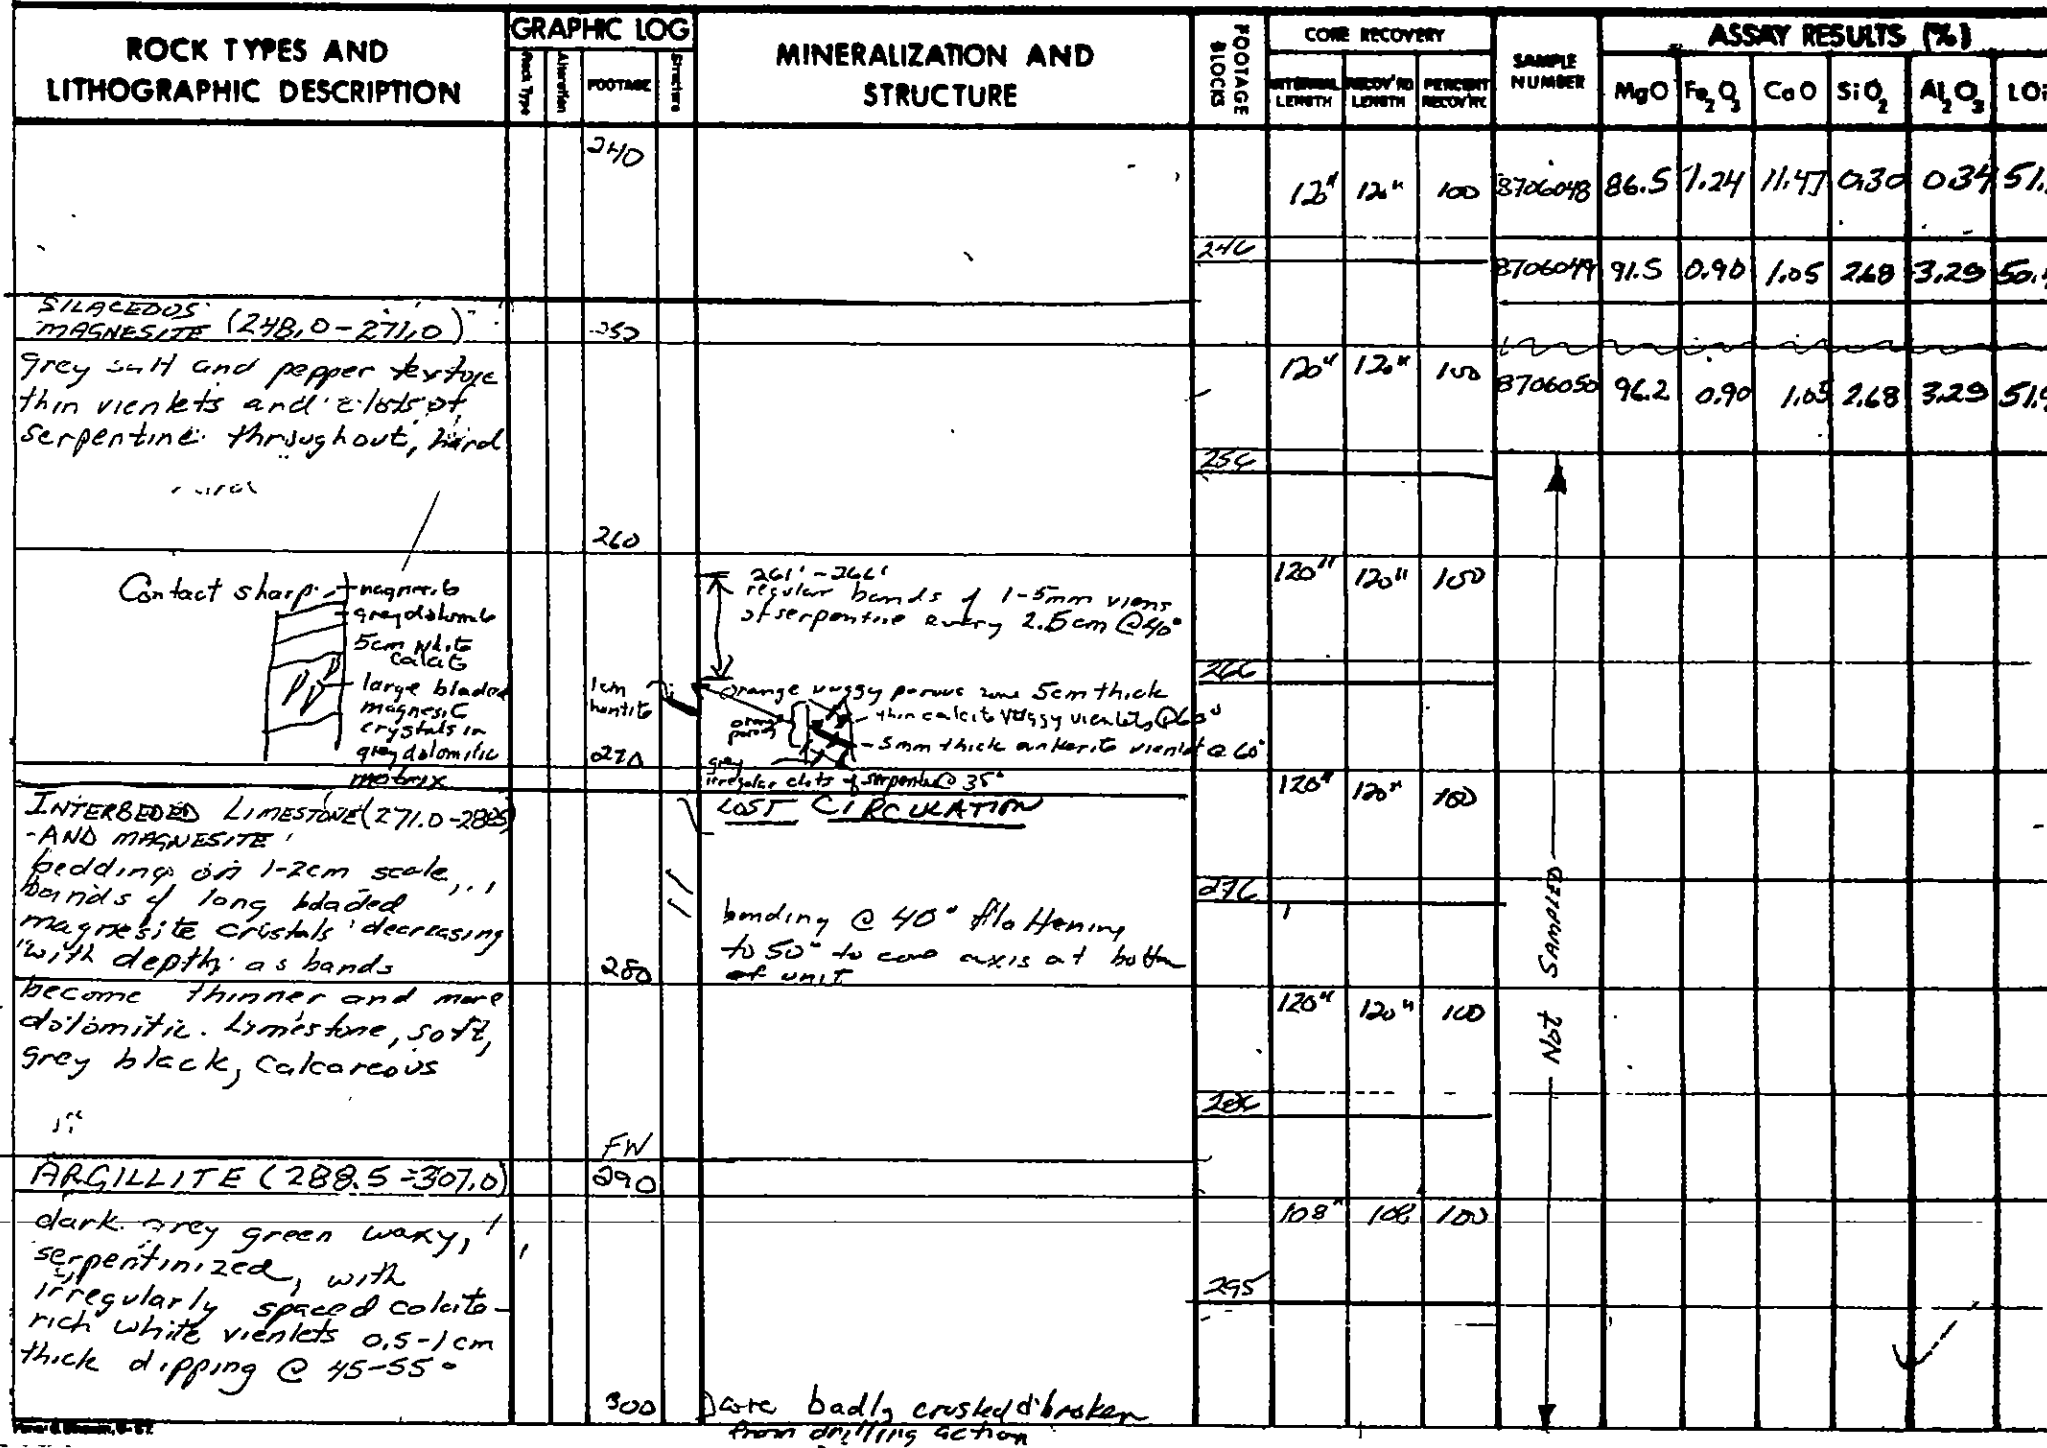 ROCK TYPES AND
LITHOGRAPHIC DESCRIPTION
GRAPHIC LOG
Rock Type
Alteration
FOOTAGE
Structure
MINERALIZATION AND
STRUCTURE
FOOTAGE
BLOCKS
CORE RECOVERY
INTERVAL
LENGTH
RECOV'RD
LENGTH
PERCENT
RECOV'RY
SAMPLE
NUMBER
ASSAY RESULTS (%)
MgO Fe2O3 CaO SiO2 Al2O3 LOi
240
120" 120" 100 8706048 86.5 1.24 11.47 0.30 0.34 51.
246
8706049 91.5 0.90 1.05 2.68 3.29 50.
SILACEOUS
MAGNESITE (248.0-271.0)
250
grey salt and pepper texture
thin vienlets and clots of
serpentine throughout, hard
120" 120" 100 8706050 96.2 0.90 1.05 2.68 3.29 51.
256
260
Contact sharp
magnesite
grey dolomite
5cm white
calcite
large bladed
magnesic
crystals in
grey dolomitic
matrix
261'-266'
regular bands of 1-5mm viens
of serpentine every 2.5cm @40°
120" 120" 100
266
1cm
huntite
orange vuggy porous zone 5cm thick
thin calcite vuggy vienlets @60°
orange
porous
5mm thick ankerite vienlet @ 60°
grey
270
irregular clots of serpentine @ 35°
LOST CIRCULATION
120" 120" 100
INTERBEDED LIMESTONE (271.0-288.5)
-AND MAGNESITE
bedding on 1-2cm scale,
bands of long bladed
magnesite cristals decreasing
with depth as bands
276
banding @ 40° flattening
to 50° to core axis at bottom
of unit
280
become thinner and more
dolomitic. Limestone, soft,
grey black, calcareous
120" 120" 100
286
Not SAMPLED
FW
ARGILLITE (288.5-307.0)
290
dark grey green waxy,
serpentinized, with
irregularly spaced calcite-
rich white vienlets 0.5-1cm
thick dipping @ 45-55°
108" 108 100
295
300
core badly crushed & broken
from drilling action